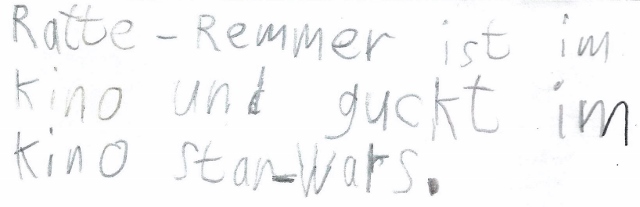 Ratte-Remmer ist im
Kino und guckt im
Kino Star-Wars.